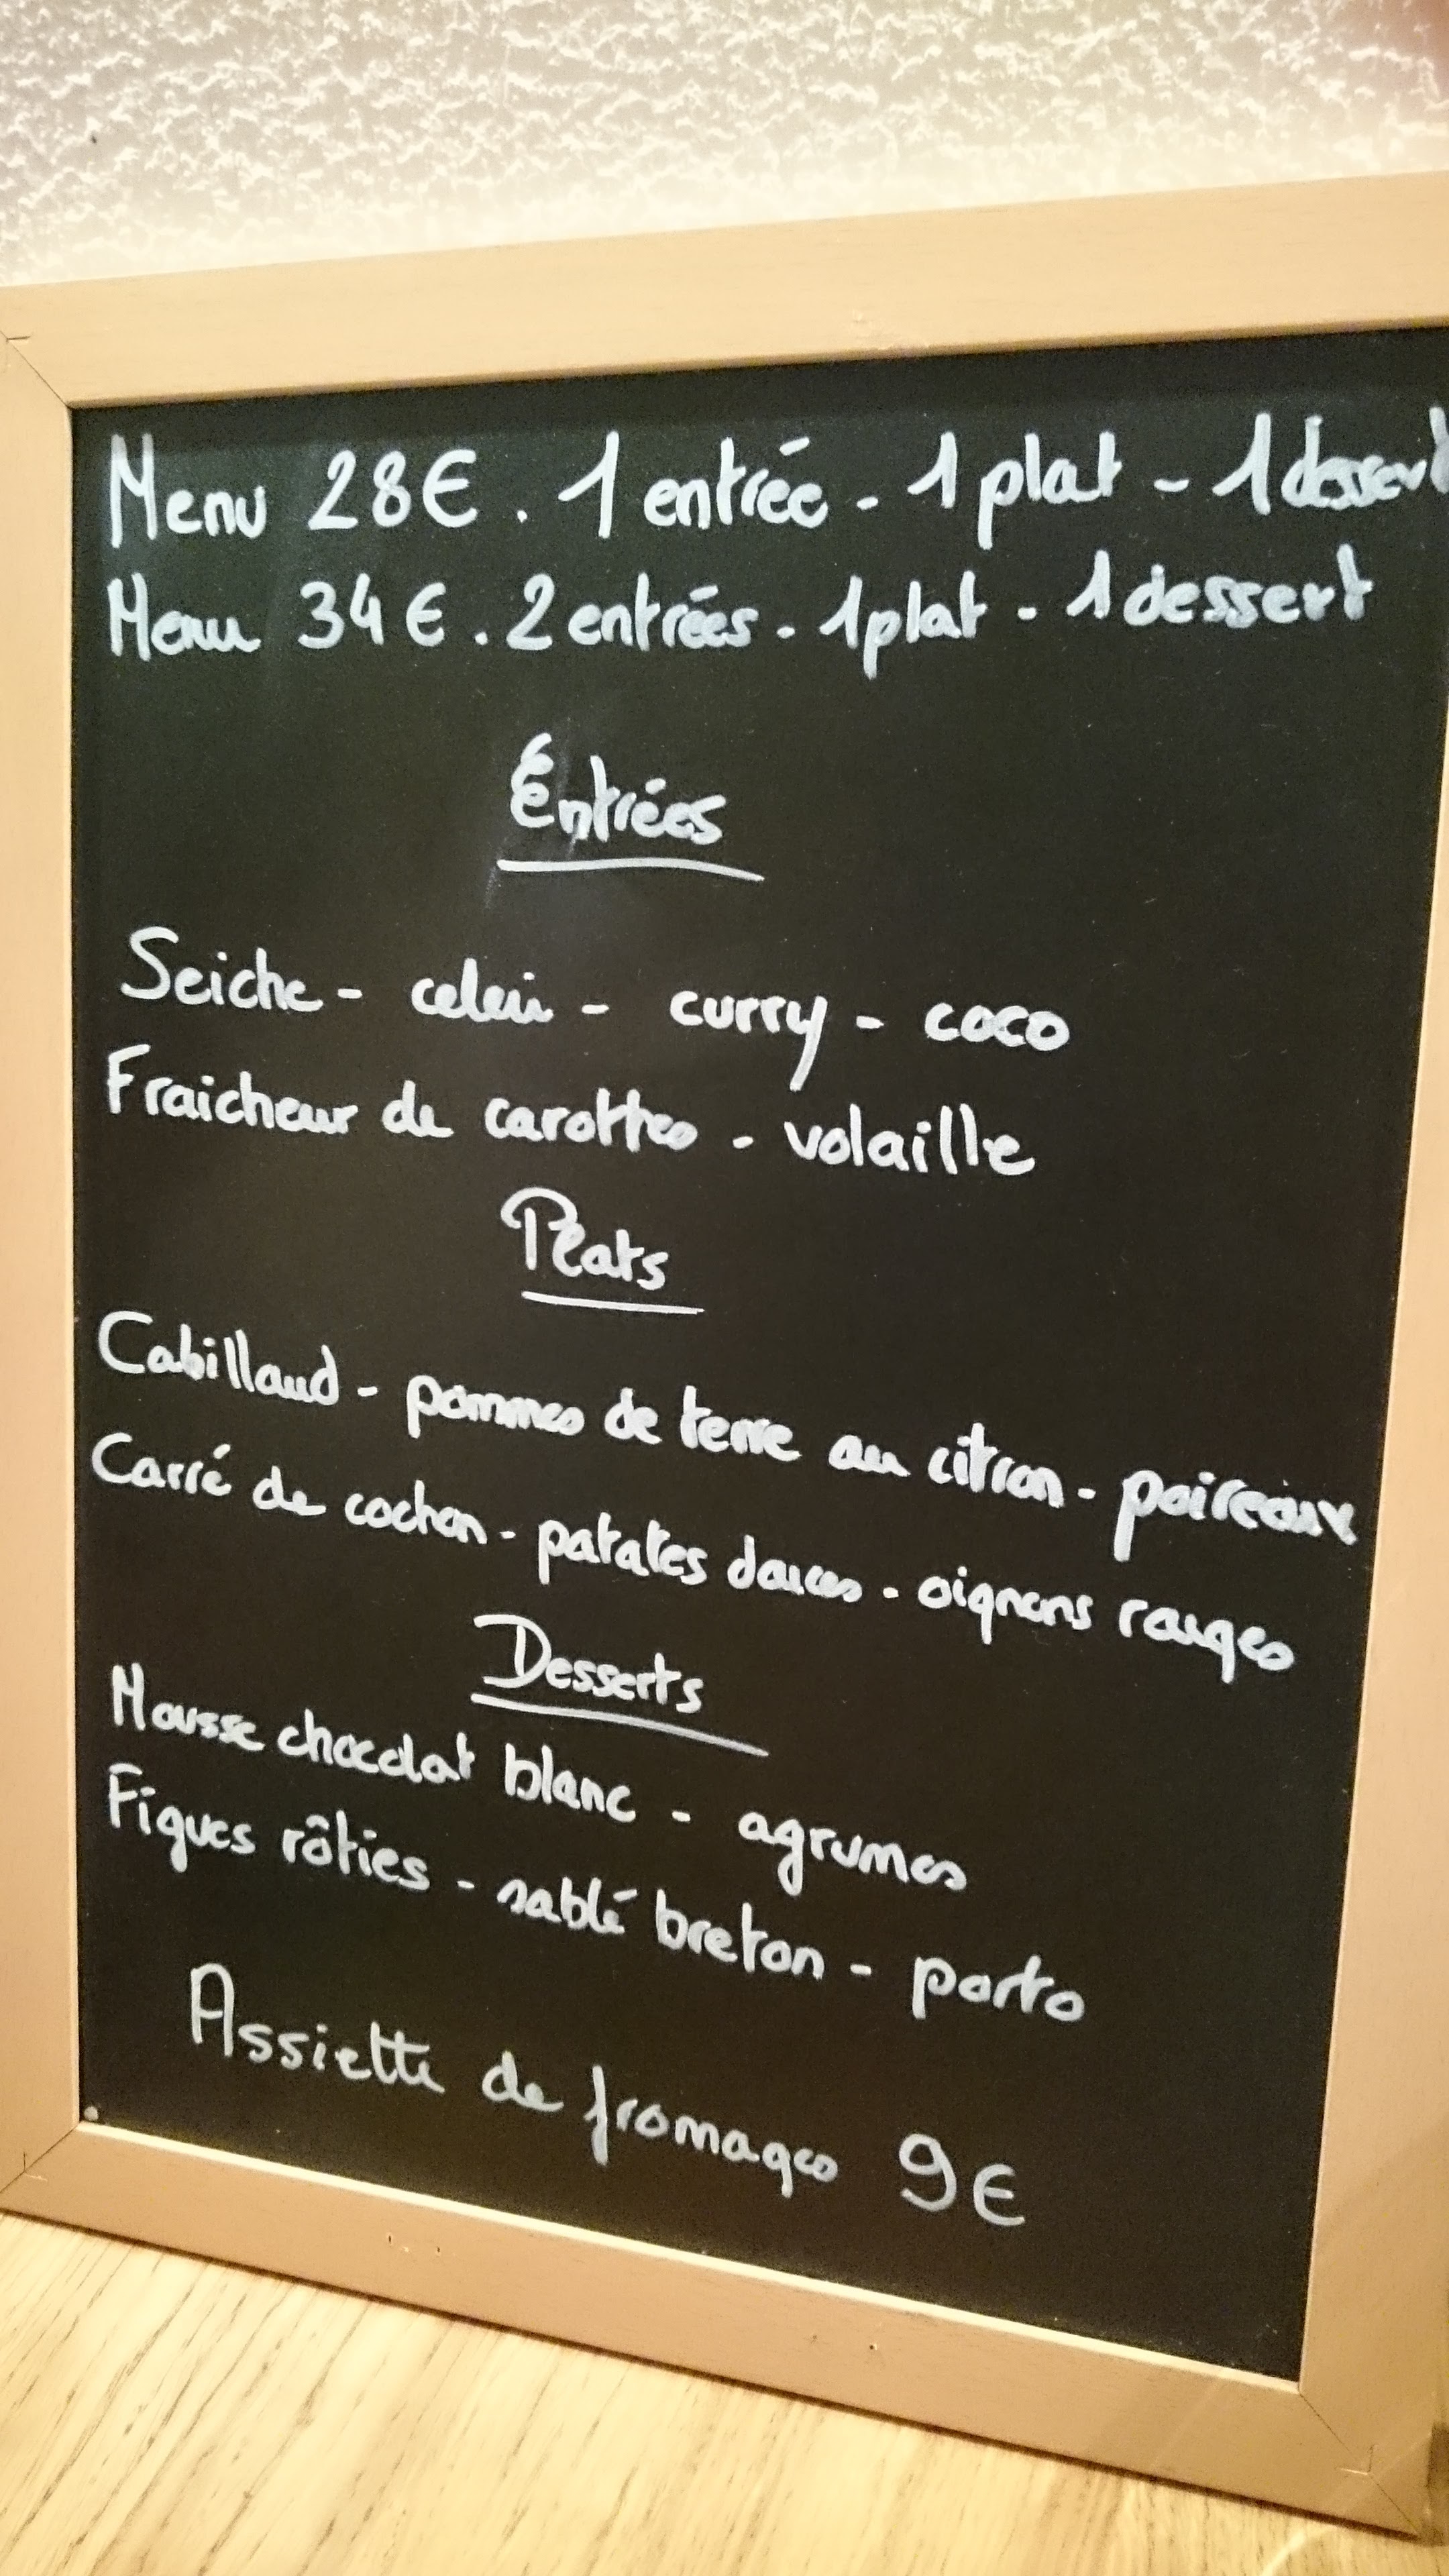 Menu 28€ . 1 entrée - 1 plat - 1 dessert
Menu 34€ . 2 entrées - 1 plat - 1 dessert
Entrées
Seiche - celeri - curry - coco
Fraicheur de carottes - volaille
Plats
Cabillaud - pommes de terre au citron - poireaux
Carré de cochon - patates douces - oignons rouges
Desserts
Mousse chocolat blanc - agrumes
Figues rôties - sablé breton - porto
Assiette de fromages 9€